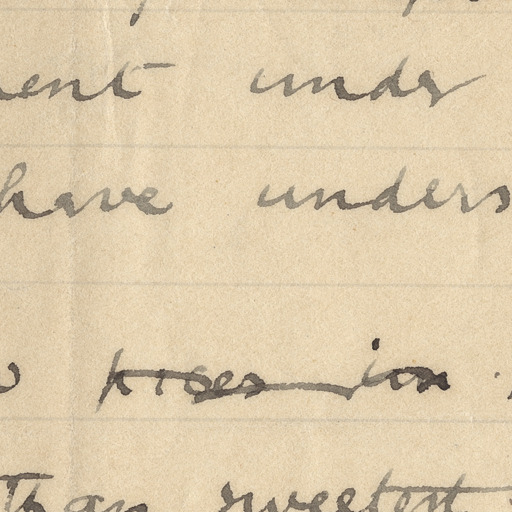 ent under
have unders
in
Than sweetest